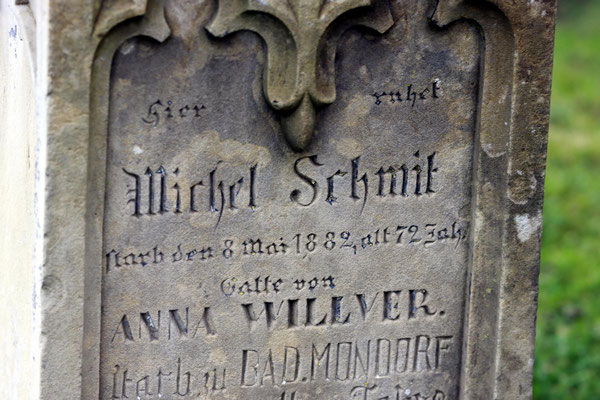 Hier ruhet
Michel Schmit
starb den 8 Mai 1882, alt 72 Jah.
Gatte von
ANNA WILLVER.
starb zu BAD. MONDORF